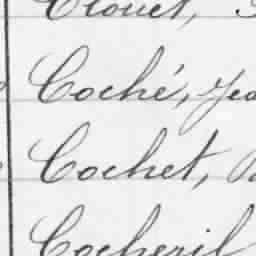 Clouet,
Coché, Jea
Cochet,
Cocheril